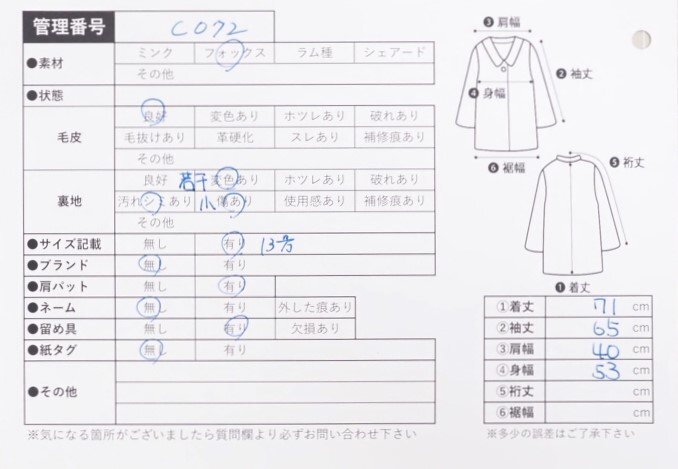 管理番号 C072
●素材 ミンク フォックス ラム種 シェアード
その他
●状態
毛皮 良好 変色あり ホツレあり 破れあり
毛抜けあり 革硬化 スレあり 補修痕あり
その他
裏地 良好 若干 変色あり ホツレあり 破れあり
汚れシミあり 小 傷あり 使用感あり 補修痕あり
その他
●サイズ記載 無し 有り 13号
●ブランド 無し 有り
●肩パット 無し 有り
●ネーム 無し 有り 外した痕あり
●留め具 無し 有り 欠損あり
●紙タグ 無し 有り
●その他
※気になる箇所がございましたら質問欄より必ずお問い合わせ下さい
❸肩幅
❷袖丈
❹身幅
❻裾幅
❺裄丈
❶着丈
①着丈 71 cm
②袖丈 65 cm
③肩幅 40 cm
④身幅 53 cm
⑤裄丈 cm
⑥裾幅 cm
※多少の誤差はご了承下さい